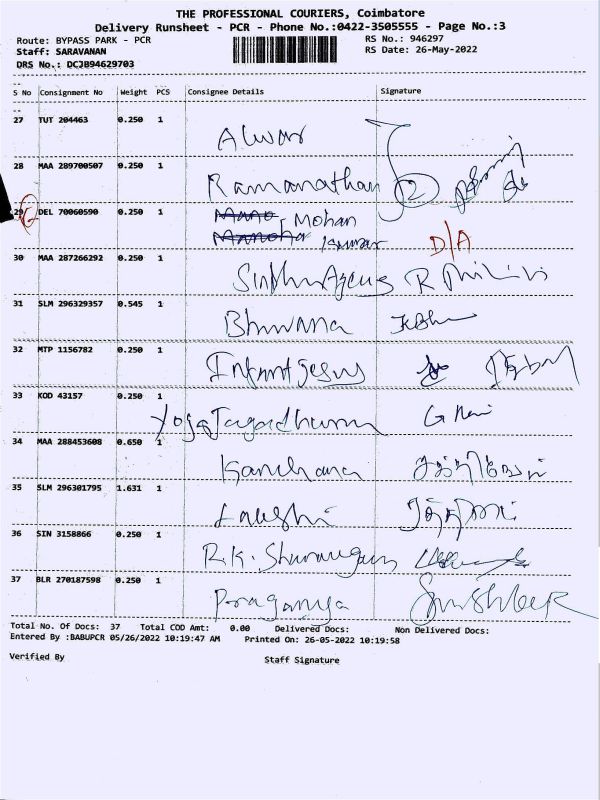 THE PROFESSIONAL COURIERS, Coimbatore
Delivery Runsheet - PCR - Phone No.:0422-3505555 - Page No.:3
Route: BYPASS PARK - PCR RS No.: 946297
Staff: SARAVANAN RS Date: 26-May-2022
DRS No.: DCJB94629703
S No Consignment No Weight PCS Consignee Details Signature
27 TUT 204463 0.250 1 Alwar
28 MAA 289700507 0.250 1 Ramanathan
29 DEL 70060590 0.250 1 Mohan
Kumar D/A
30 MAA 287266292 0.250 1
31 SLM 296329357 0.545 1 Bhuvana
32 MTP 1156782 0.250 1 Infant Jesus
33 KOD 43157 0.250 1 G
34 MAA 288453608 0.650 1 Kanchana
35 SLM 296301795 1.631 1
36 SIN 3158866 0.250 1 R.K.
37 BLR 270187598 0.250 1
Total No. Of Docs: 37 Total COD Amt: 0.00 Delivered Docs: Non Delivered Docs:
Entered By :BABUPCR 05/26/2022 10:19:47 AM Printed On: 26-05-2022 10:19:58
Verified By Staff Signature